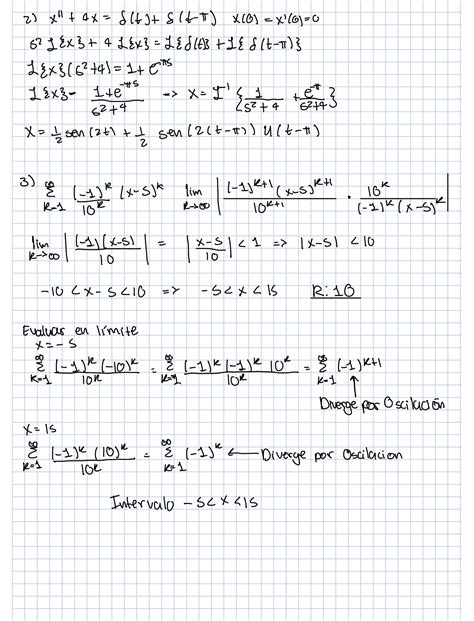 2) x'' + 4x = δ(t) + δ(t-π)   x(0) = x'(0) = 0
s² L{x} + 4 L{x} = L{δ(t)} + L{δ(t-π)}
L{x}(s²+4) = 1 + e^-πs
L{x} = (1+e^-πs)/(s²+4) => x = L^-1 {1/(s²+4) + e^-π/(s²+4)}
x = 1/2 sen(2t) + 1/2 sen(2(t-π)) U(t-π)
3) ∞ Σ k=1 (-1)^k/10^k (x-5)^k   lim k→∞ | (-1)^k+1 (x-5)^k+1 / 10^k+1 · 10^k / (-1)^k (x-5)^k |
lim k→∞ | (-1)(x-5)/10 | = | x-5/10 | < 1 => |x-5| < 10
-10 < x-5 < 10 => -5 < x < 15   R: 10
Evaluar en límite
x = -5
∞ Σ k=1 (-1)^k (-10)^k / 10^k = ∞ Σ k=1 (-1)^k (-1)^k 10^k / 10^k = ∞ Σ k=1 (-1)^k+1
Diverge por Oscilación
x = 15
∞ Σ k=1 (-1)^k (10)^k / 10^k = ∞ Σ k=1 (-1)^k ← Diverge por Oscilacion
Intervalo -5 < x < 15